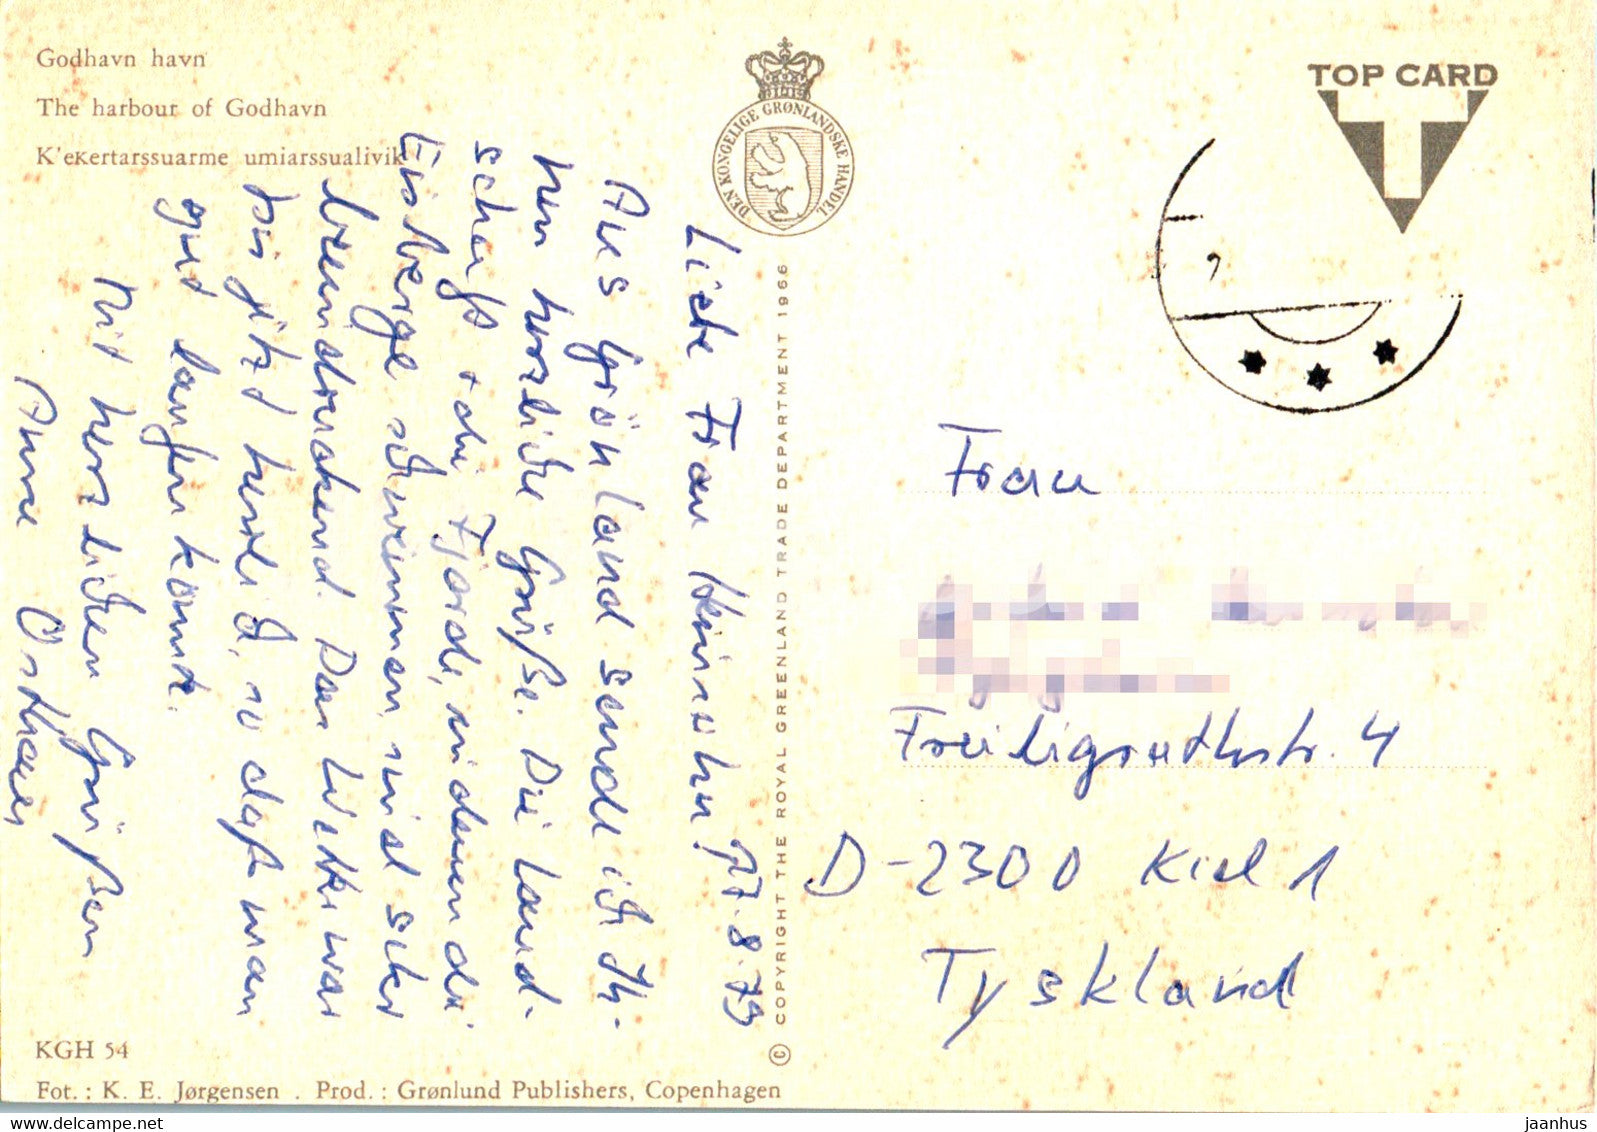 Godhavn havn
The harbour of Godhavn
K'eĸertarssuarme umiarssualivik
DEN KONGELIGE GRØNLANDSKE HANDEL
TOP CARD
T
27.8.79
Liebe Frau
Aus Grönland sende ich Ih-
nen herzliche Grüße. Die Land-
schaft + die Fjorde, in denen die
Eisberge schwimmen, sind sehr
beeindruckend. Das Wetter war
bis jetzt herrlich, so daß man
gut laufen konnte.
Mit herzlichen Grüßen
Anne
Frau
Freiligrathstr. 4
D-2300 Kiel 1
Tyskland
COPYRIGHT THE ROYAL GREENLAND TRADE DEPARTMENT 1966
©
KGH 54
Fot.: K. E. Jørgensen . Prod.: Grønlund Publishers, Copenhagen
www.delcampe.net
jaanhus